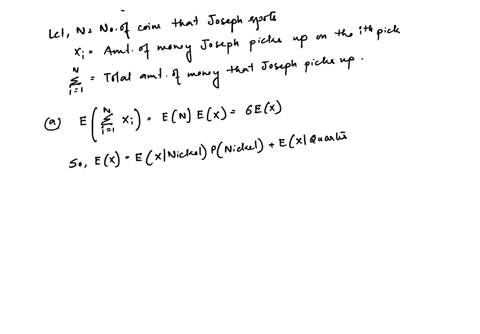 Let, N = No. of coins that Joseph spots
Xi = Amt. of money Joseph picks up on the ith pick
N Σ i=1 = Total amt. of money that Joseph picks up.
(a) E(N Σ i=1 Xi) = E(N) E(X) = 6E(X)
So, E(X) = E(X|Nickel) P(Nickel) + E(X|Quarter